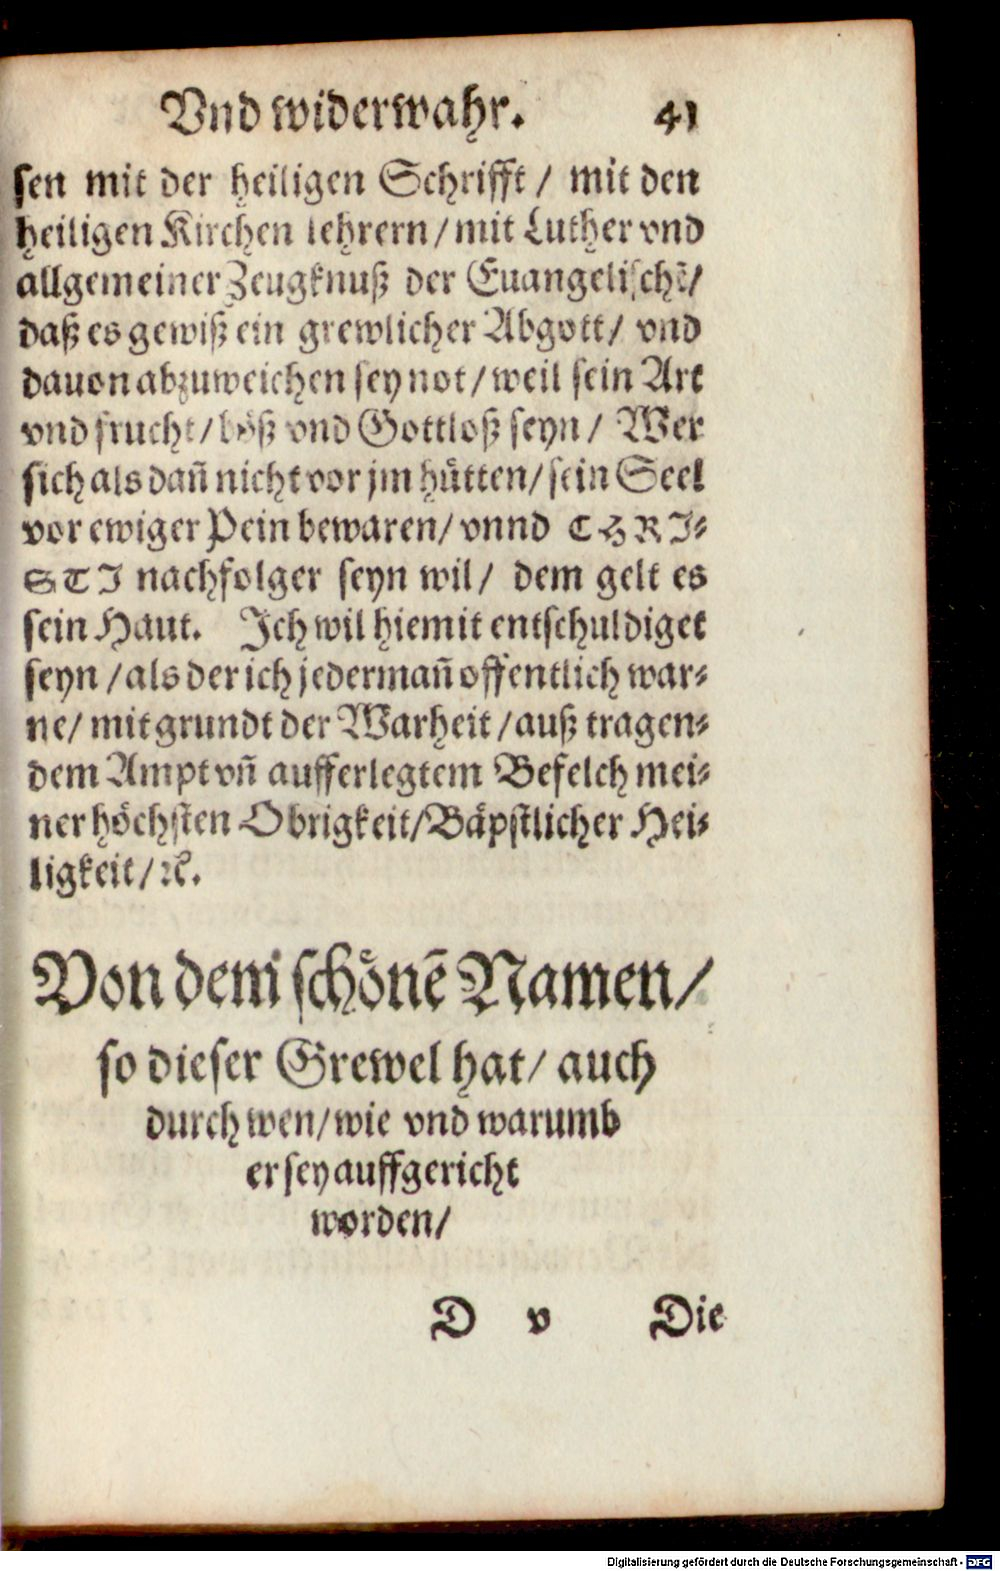 Vnd widerwahr. 41
sen mit der heiligen Schrifft / mit den
heiligen Kirchen lehrern / mit Luther vnd
allgemeiner Zeugknuß der Euangelischẽ/
daß es gewiß ein grewlicher Abgott / vnd
dauon abzuweichen sey not / weil sein Art
vnd frucht / böß vnd Gottloß seyn / Wer
sich als dañ nicht vor jm hütten / sein Seel
vor ewiger Pein bewaren / vnnd CHRI-
STI nachfolger seyn wil / dem gelt es
sein Haut. Ich wil hiemit entschuldiget
seyn / als der ich jedermañ offentlich war-
ne / mit grundt der Warheit / auß tragen-
dem Ampt vñ aufferlegtem Befelch mei-
ner höchsten Obrigkeit / Bäpstlicher Hei-
ligkeit / ꝛc.
Von dem schönẽ Namen /
so dieser Grewel hat / auch
durch wen / wie vnd warumb
er sey auffgericht
worden /
D v Die
Digitalisierung gefördert durch die Deutsche Forschungsgemeinschaft - DFG